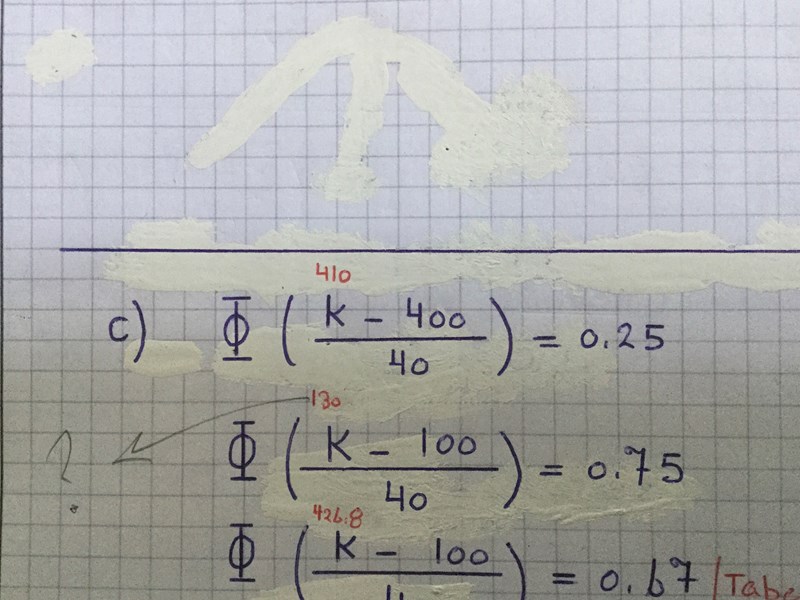 410
c) Φ ( K - 400 / 40 ) = 0.25
130
? Φ ( K - 100 / 40 ) = 0.75
426.8
Φ ( K - 100 / 4 ) = 0.67 / Tabe